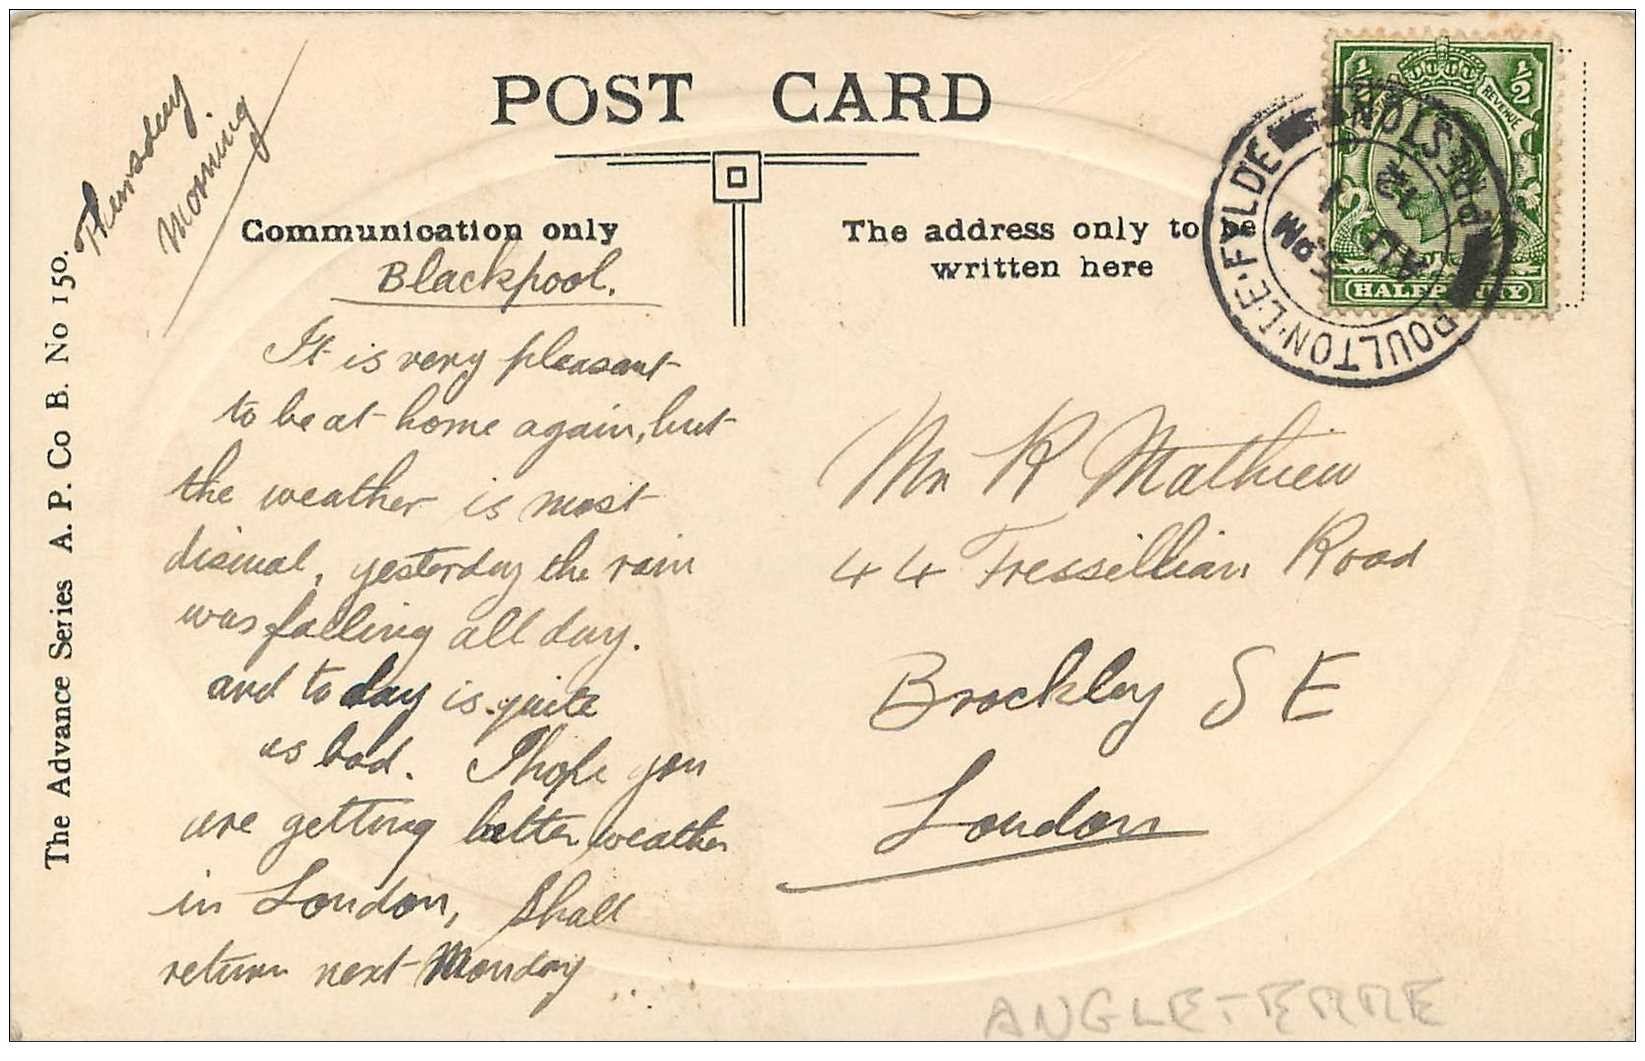 POST CARD
Thursday
Morning
Communication only
The address only to be
written here
Blackpool.
It is very pleasant
to be at home again, but
the weather is most
dismal, yesterday the rain
was falling all day.
and to day is quite
as bad. I hope you
are getting better weather
in London, shall
return next Monday
Mr R Mathieu
44 Tressillian Road
Brockley S E
London
The Advance Series A. P. Co B. No 150.
POULTON-LE-FYLDE
PRESTON
5 PM
AU
1
12
REVENUE
1/2
1/2
HALFPENNY
ANGLETERRE